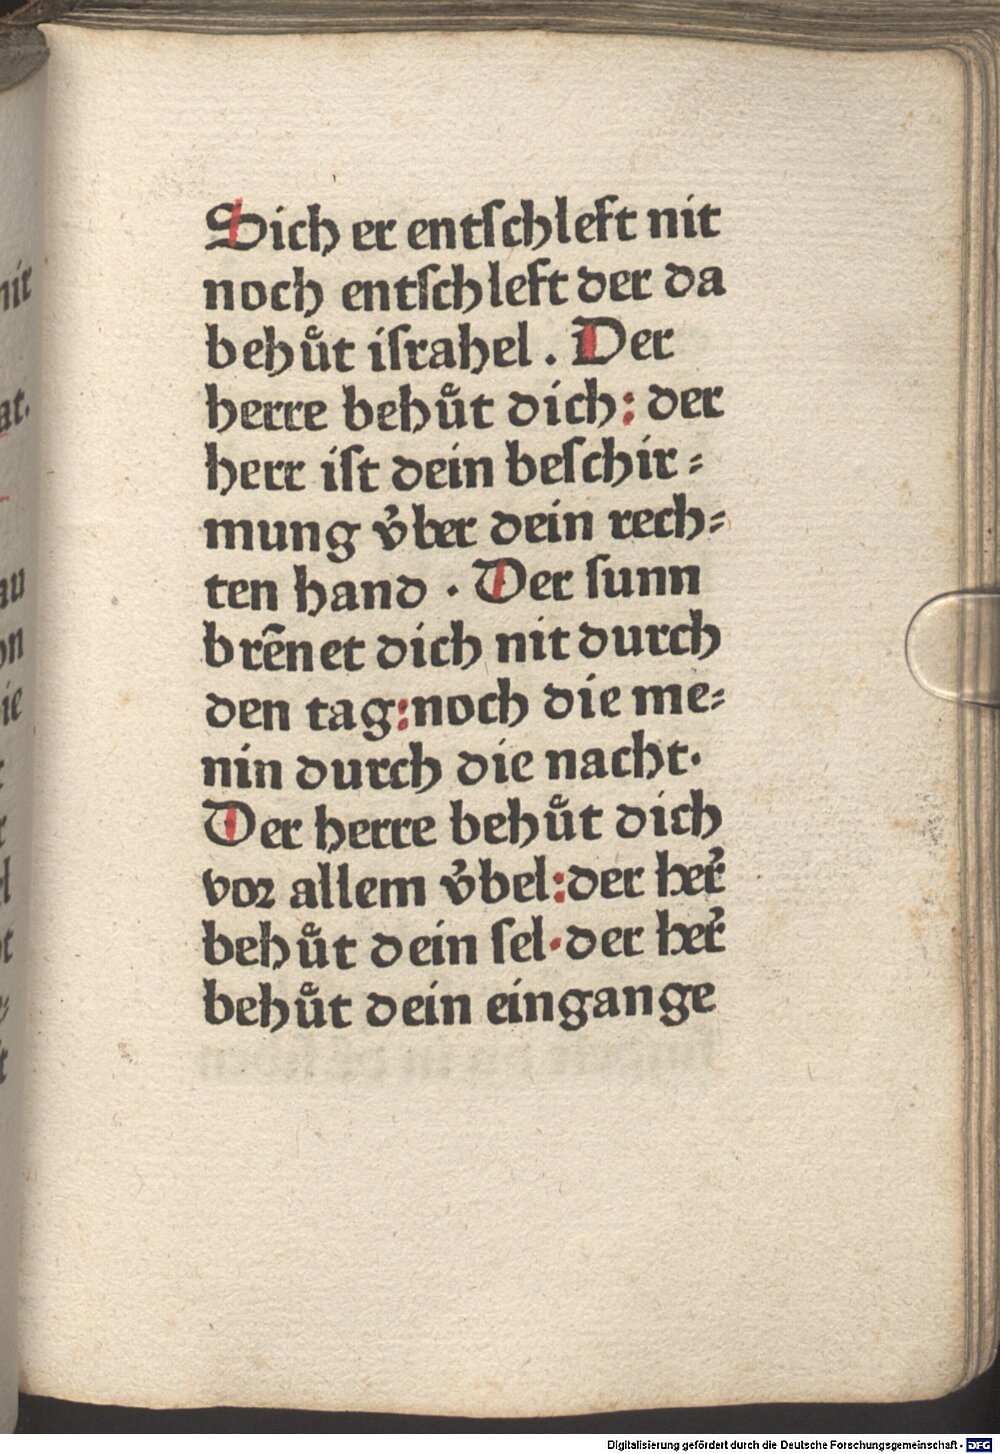 Sich er entſchleft nit
noch entſchleft der da
behuͤt iſrahel . Der
herre behuͤt dich: der
herr iſt dein beſchir⸗
mung v̓ber dein rech⸗
ten hand · Der ſunn
brēnet dich nit durch
den tag:noch die me⸗
nin durch die nacht·
Der herre behuͤt dich
voꝛ allem v̓bel:der her̓
behuͤt dein ſel·der her̓
behuͤt dein eingange
Digitalisierung gefördert durch die Deutsche Forschungsgemeinschaft - DFG